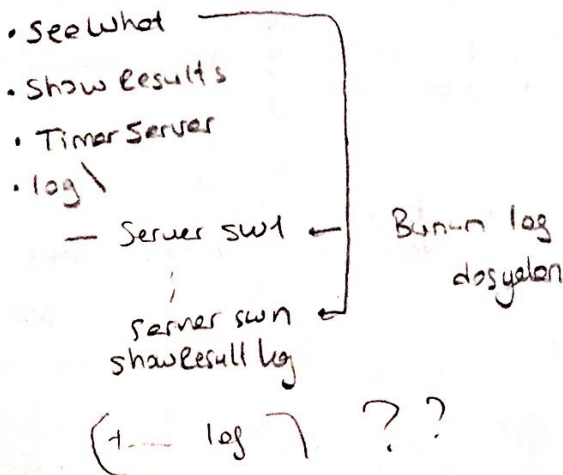 • SeeWhat
• ShowResults
• Timer Server
• log \
— Server sw1 ← Bunun log
dosyaları
server swn
showResult log
(+ log ) ??